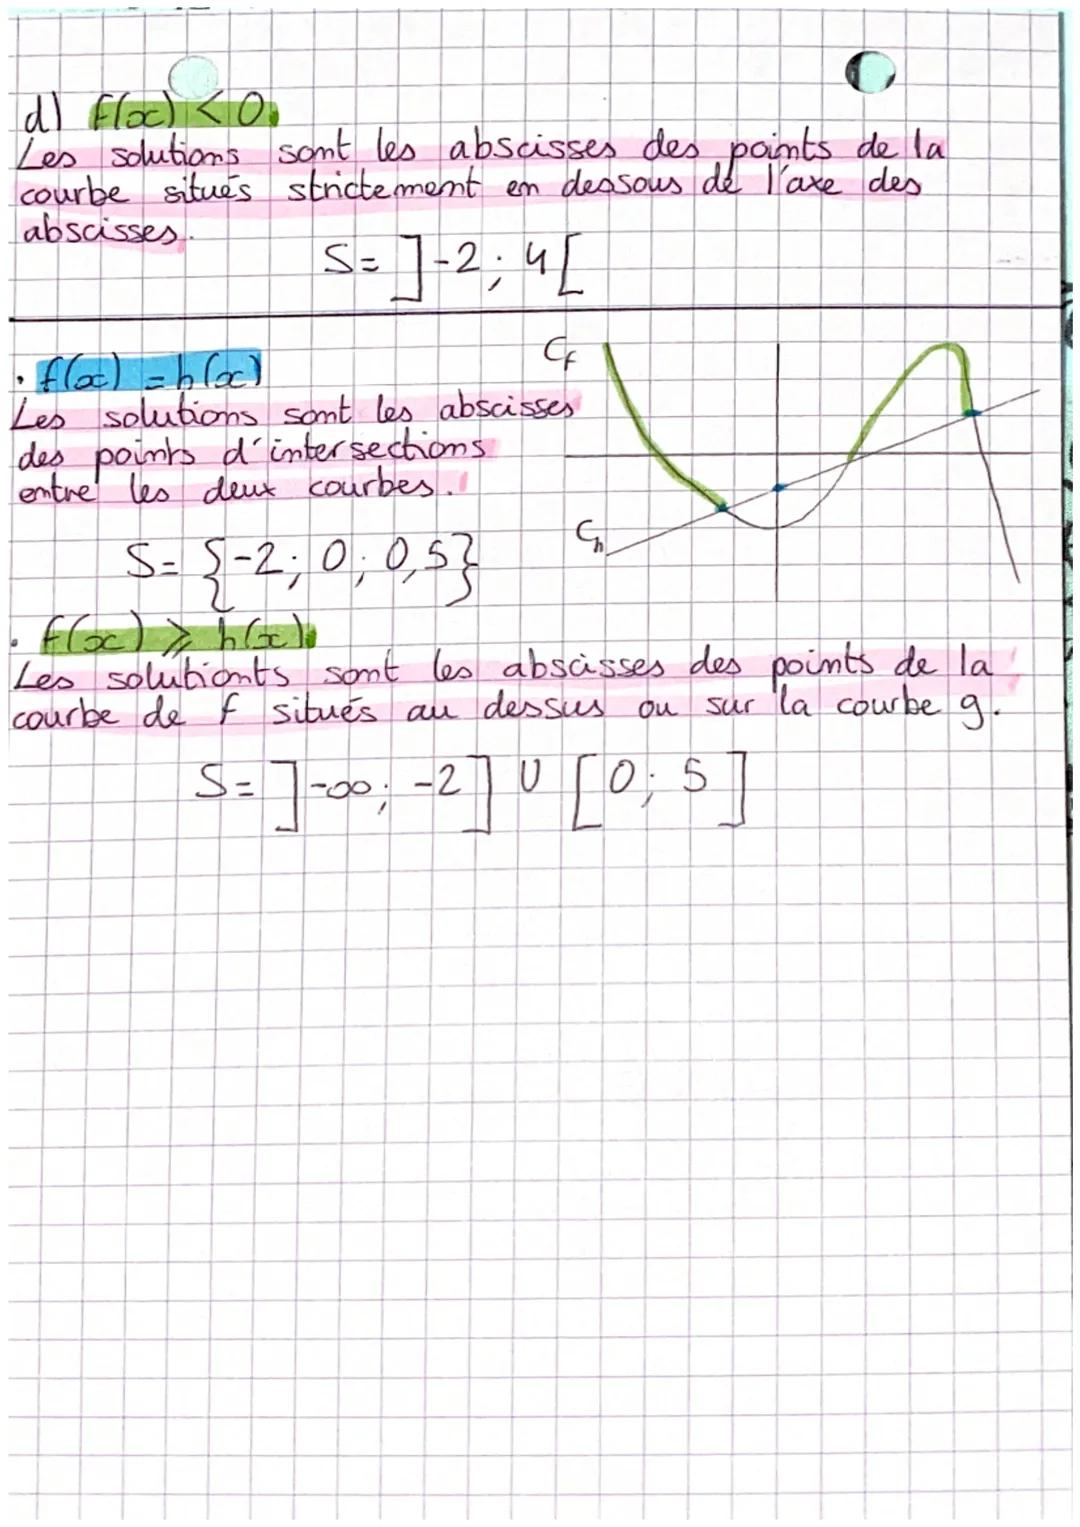 d) f(x) < 0.
Les solutions sont les abscisses des points de la
courbe situés strictement en dessous de l'axe des
abscisses.
S= ]-2; 4[
• f(x) = h(x)
Les solutions sont les abscisses
des points d'intersections
entre les deux courbes.
Cf
Ch
S= {-2; 0; 0,5}
• f(x) ⩾ h(x)
Les solutionts sont les abscisses des points de la
courbe de f situés au dessus ou sur la courbe g.
S= ]-∞; -2] U [0; 5]